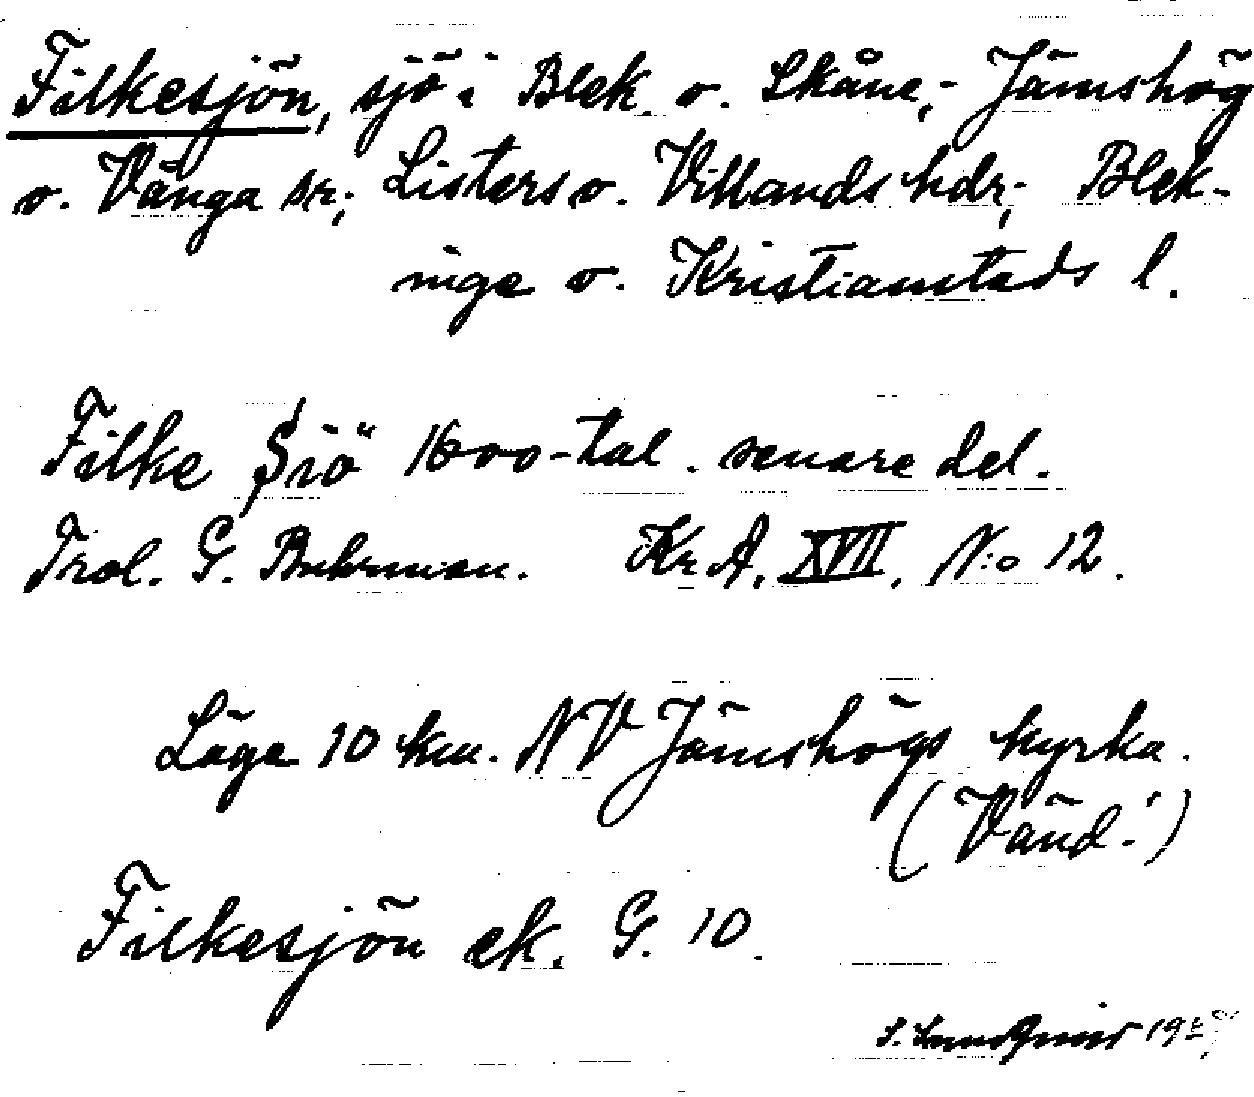 Filkesjön, sjö i Blek. o. Skåne; Jämshög
o. Vånga sr; Listers o. Villands hdr; Blek-
inge o. Kristianstads l.
Filke Siö 1600-tal. senare del.
Trol. G. Buhrman. Kr A. XVII. N:o 12.
Läge 10 km. NV Jämshögs kyrka.
(Vänd!)
Filkesjön ek. G. 10.
S. Lundqvist